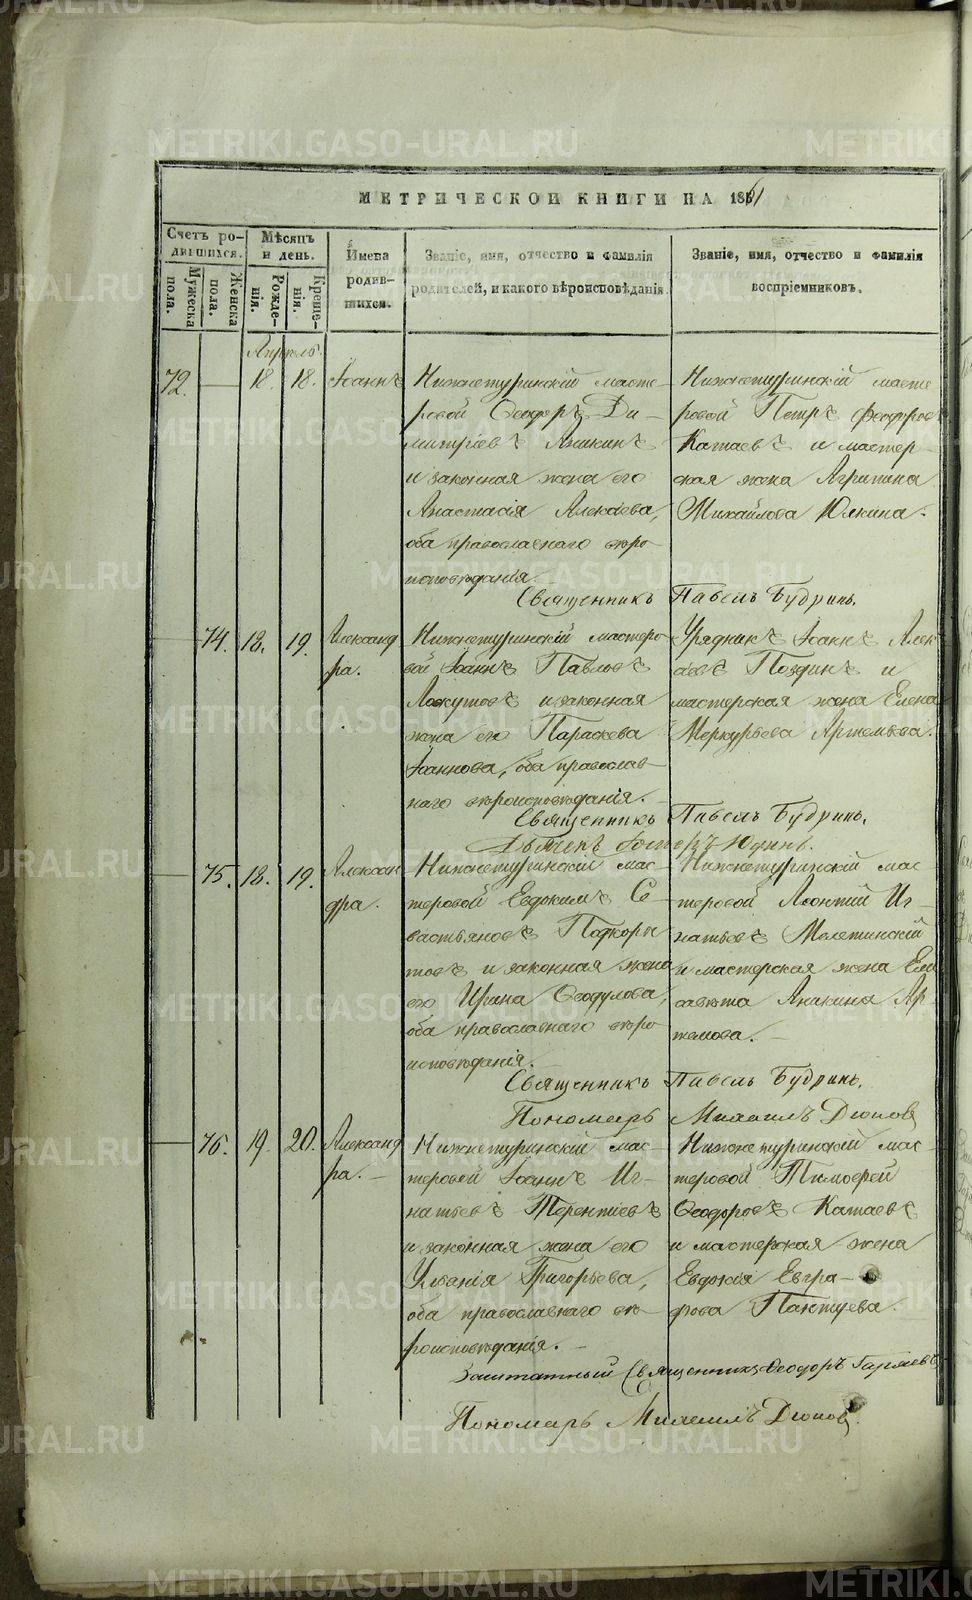 МЕТРИЧЕСКОЙ КНИГИ НА 1861
Счетъ родившихся.
Мѣсяцъ и день.
Имена родившихся.
Званіе, имя, отчество и фамилія родителей, и какого вѣроисповѣданія.
Званіе, имя, отчество и фамилія воспріемниковъ.
Мужеска пола.
Женска пола.
Рожденія.
Крещенія.
Апрель.
72. — 18. 18. Іоаннъ
Нижнетуринскій масте-
ровой Ѳеодоръ Ди-
митріевъ Аникинъ
и законная жена его
Анастасія Алексіева,
оба православнаго вѣро-
исповѣданія.
Нижнетуринскій масте
ровой Петръ Феодоровъ
Катаевъ и мастер-
ская жена Агрипина
Михайлова Юлкина.
Священникъ Павелъ Будринъ.
— 74. 18. 19. Александ
ра.
Нижнетуринскій мастеро-
вой Іоаннъ Павловъ
Лоскутовъ и законная
жена его Параскева
Іоаннова, оба православ-
наго вѣроисповѣданія.
Урядникъ Іоаннъ Алек
мастерская жена Елена
Меркурьева Артемьева.
Священникъ Павелъ Будринъ.
— 75. 18. 19. Алексан
дра.
Нижнетуринскій мас-
теровой Евдокимъ Се-
вастьяновъ Подкоры
товъ и законная жена
его Ирина Ѳеодулова,
оба православнаго вѣро
исповѣданія.
Нижнетуринскій мас
теровой Леонтий Иг-
натьевъ Мелетинскій
и мастерская жена Ели
савета Аникина Ар
темова.
Священникъ Павелъ Будринъ.
Пономарь Михаилъ Дюпов
— 76. 19. 20. Александ
ра. —
Нижнетуринскій мас-
теровой Іоаннъ Иг-
натьевъ Терентіевъ
и законная жена его
Уліанія Григорьева,
оба православнаго вѣ-
роисповѣданія.
Нижнетуринскій мас-
теровой Тимоѳей
Ѳеодоровъ Катаевъ
и мастерская жена
Евдокія Евгра-
фова Пантуева.
Заштатный Священникъ Ѳеодоръ Гаряевъ
Пономарь Михаилъ Дюпов.
METRIKI.GASO-URAL.RU